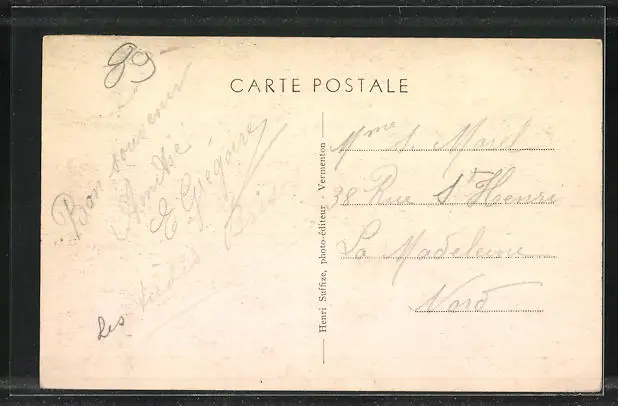 89
CARTE POSTALE
Bon souvenir
Amitié
E Grégoire
Les
Henri Suffize, photo-éditeur, Vermenton
Mme A. Morel
38 Rue St Henri
La Madeleine
Nord